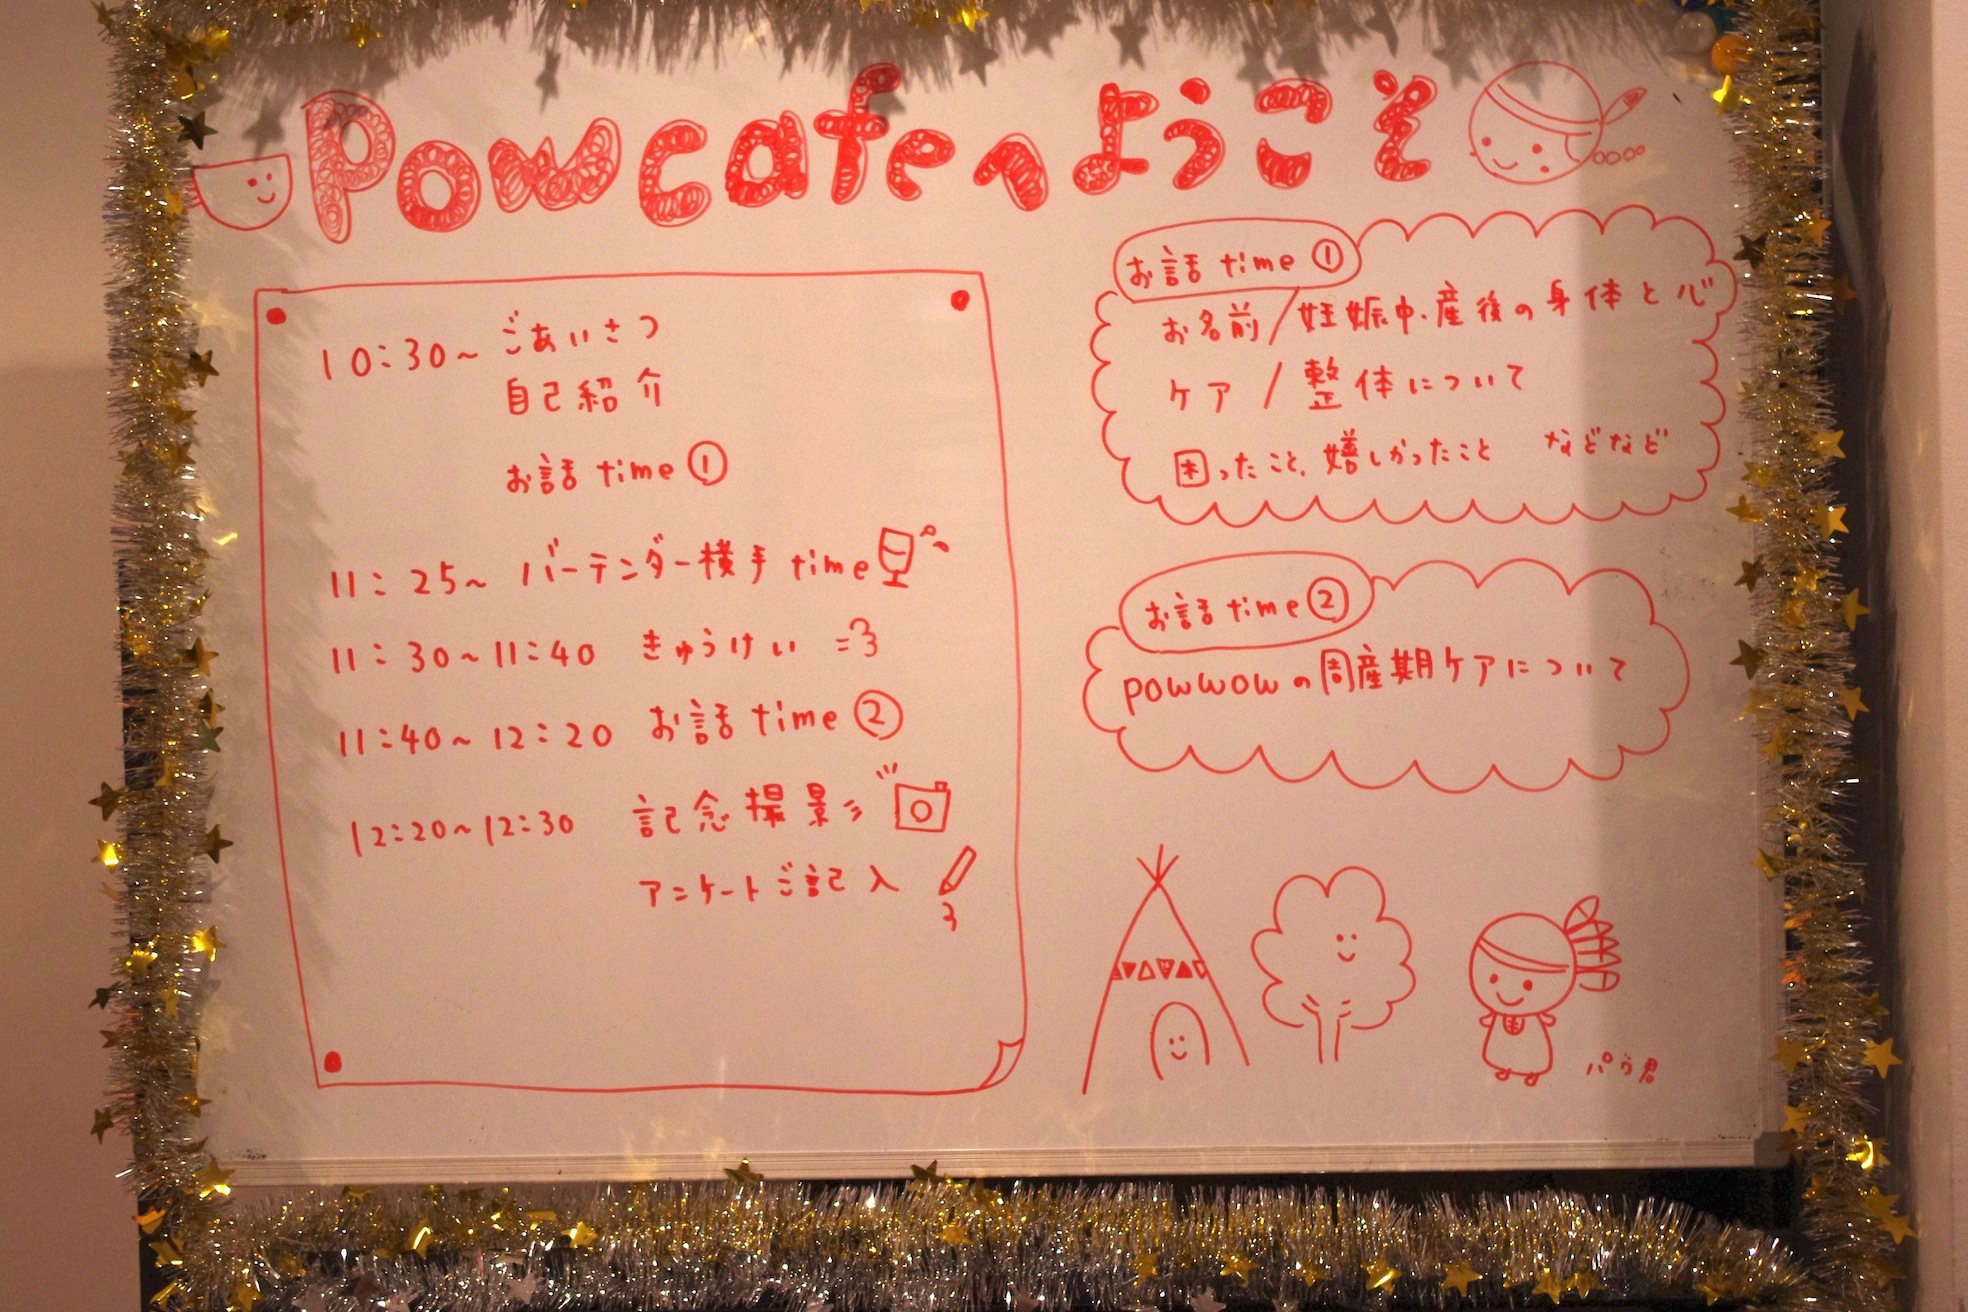 Powcafeへようこそ
10:30~ ごあいさつ
自己紹介
お話time①
11:25~ バーテンダー横手time
11:30~11:40 きゅうけい =3
11:40~12:20 お話time②
12:20~12:30 記念撮影
アンケートご記入
お話time①
お名前/妊娠中.産後の身体と心
ケア/整体について
困ったこと、嬉しかったこと などなど
お話time②
powwowの周産期ケアについて
パウ君